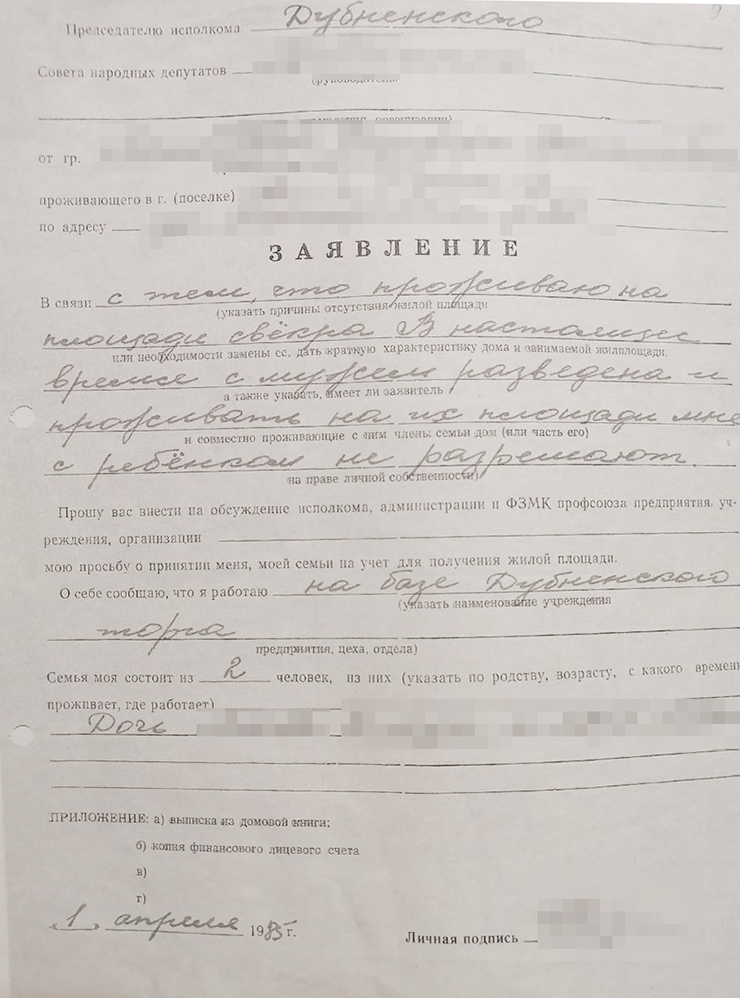 9
Председателю исполкома Дубненского
Совета народных депутатов
(руководителю
от гр.
проживающего в г. (поселке)
по адресу
ЗАЯВЛЕНИЕ
В связи с тем, что проживаю на
(указать причины отсутствия жилой площади
площади свёкра В настоящее
или необходимости замены ее, дать краткую характеристику дома и занимаемой жилплощади,
время с мужем разведена и
а также указать, имеет ли заявитель
проживать на их площади мне
и совместно проживающие с ним члены семьи дом (или часть его)
с ребёнком не разрешают.
на праве личной собственности)
Прошу вас внести на обсуждение исполкома, администрации и ФЗМК профсоюза предприятия, уч-
реждения, организации
мою просьбу о принятии меня, моей семьи на учет для получения жилой площади.
О себе сообщаю, что я работаю на базе Дубненского
(указать наименование учреждения
торга
предприятия, цеха, отдела)
Семья моя состоит из 2 человек, из них (указать по родству, возрасту, с какого времени
проживает, где работает)
Дочь
ПРИЛОЖЕНИЕ: а) выписка из домовой книги;
б) копия финансового лицевого счета
в)
г)
„1„ апреля 1985 г.
Личная подпись